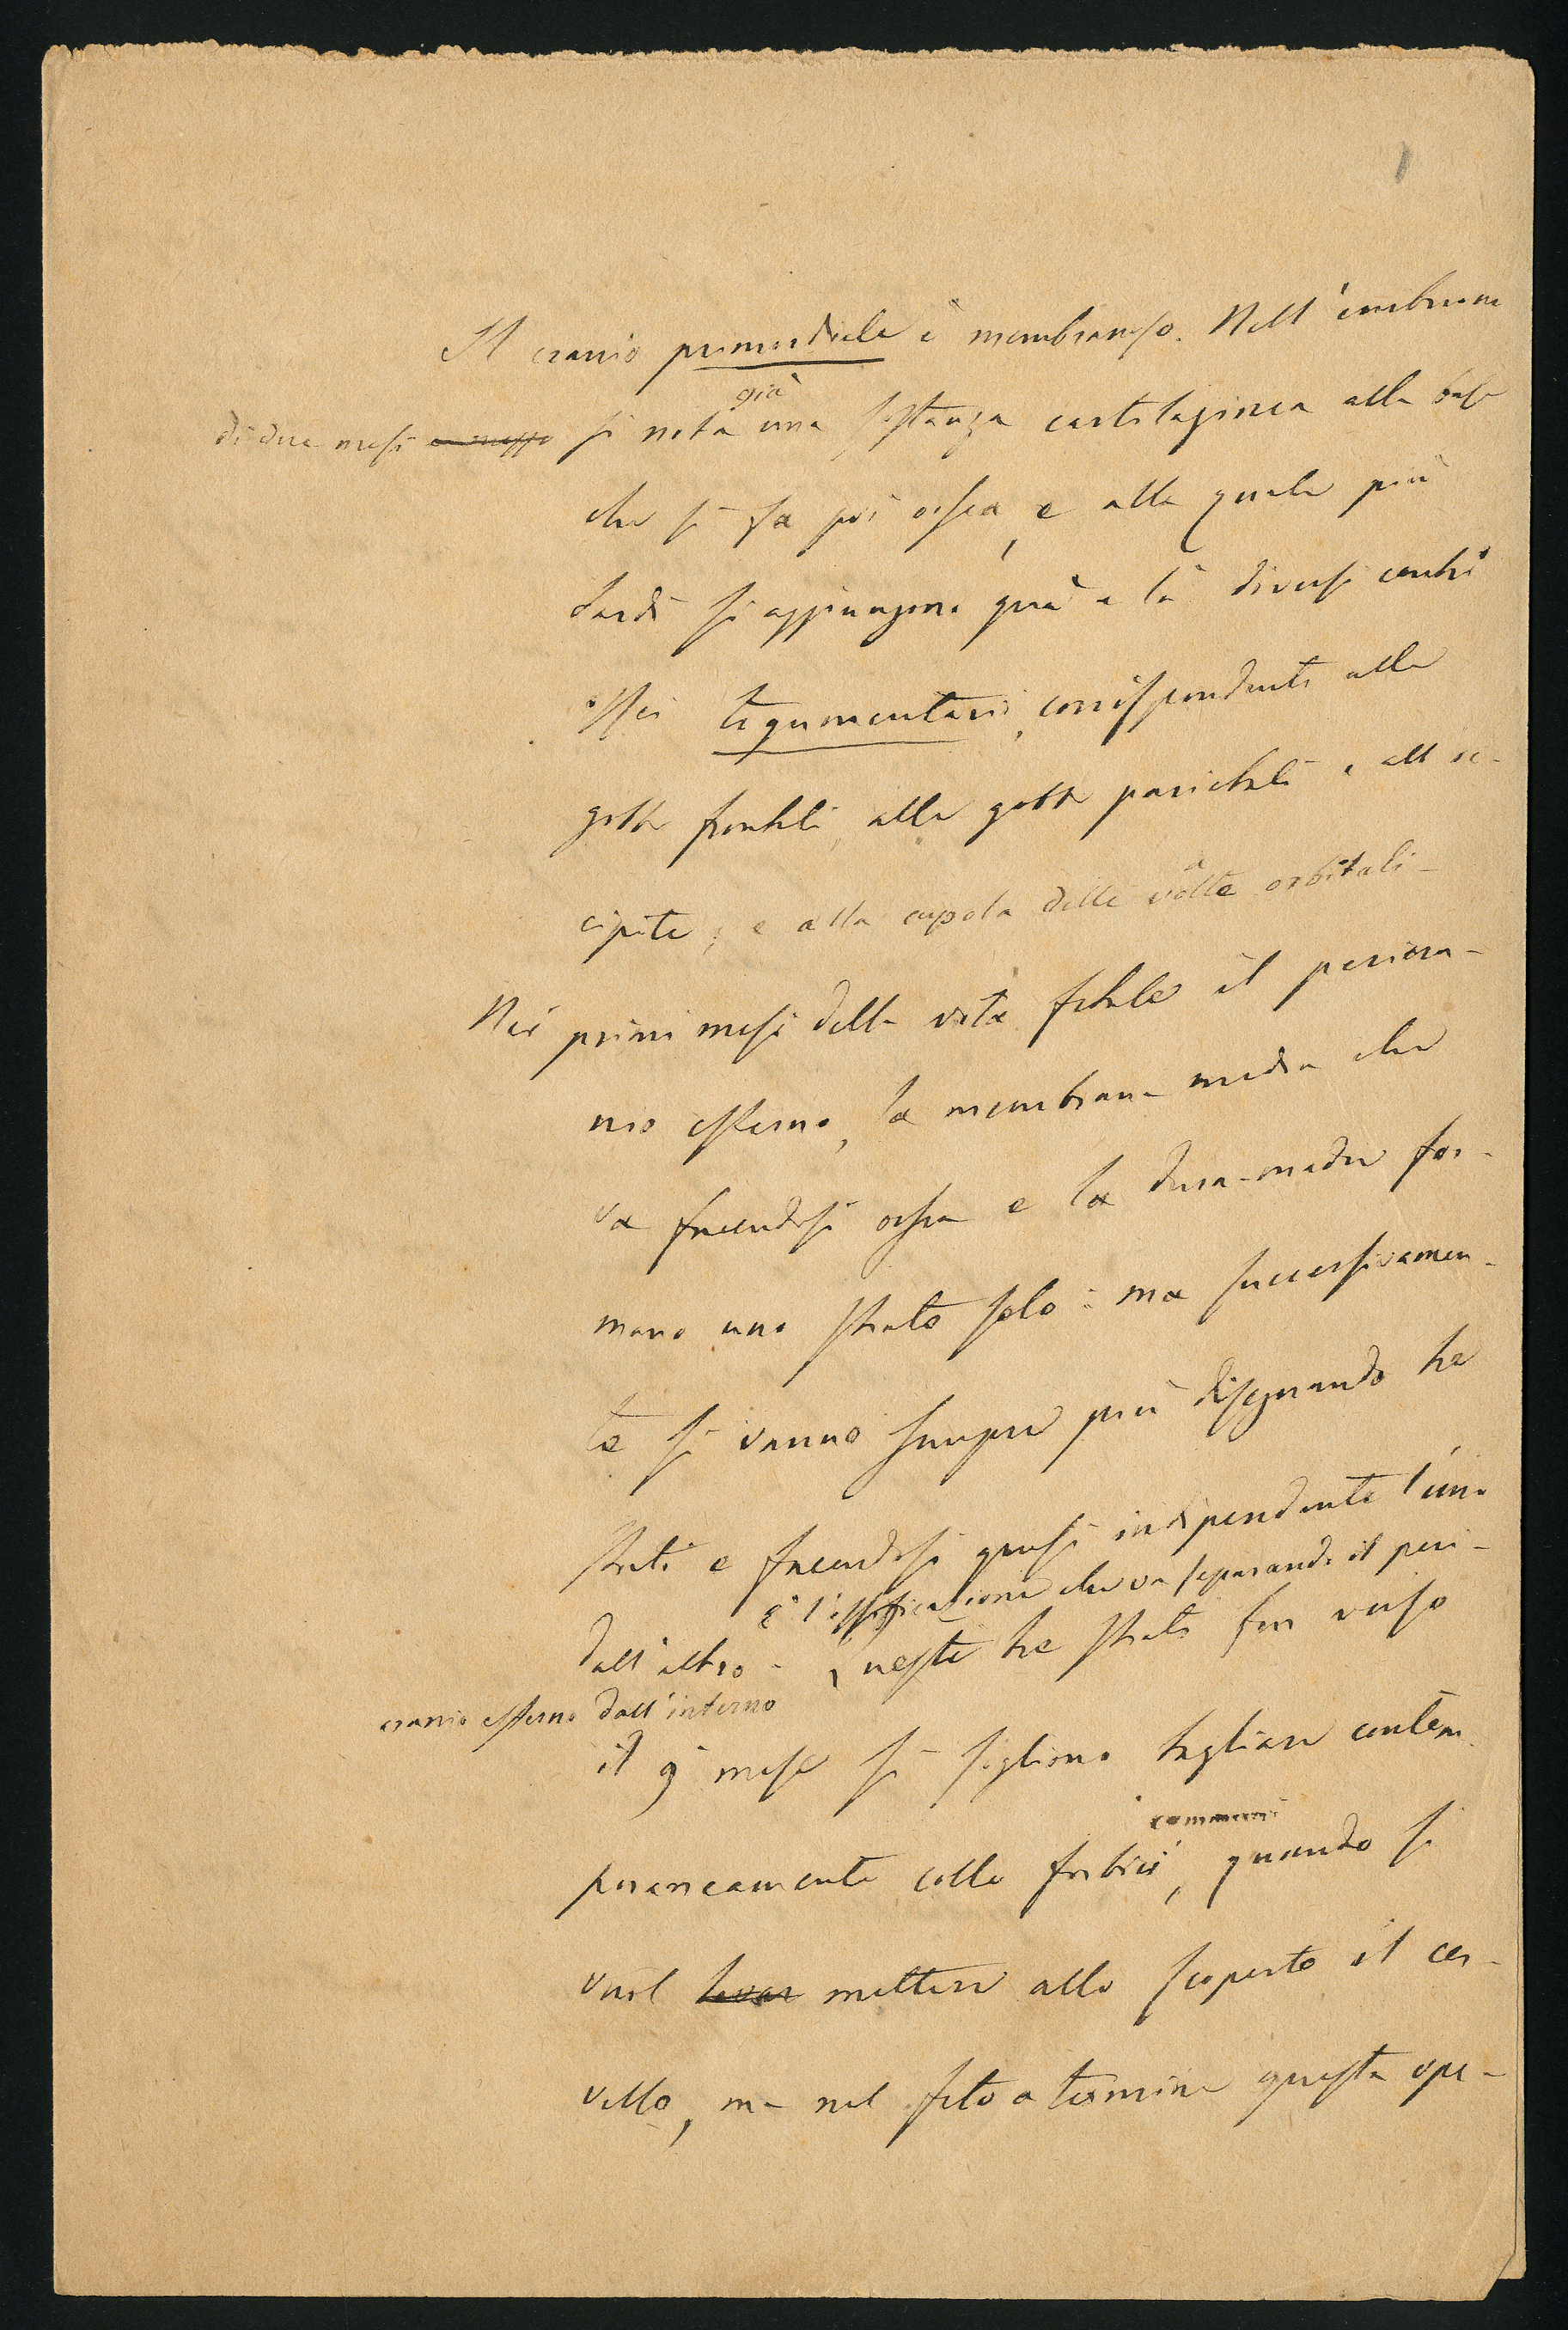 Il cranio primordiale è membranoso. Nell'embrione
di due mesi e mezzo si nota già una sostanza cartilaginea alla base
che si fa poi ossea, e alla quale più
tardi si aggiungono quà e là diversi centri
ossei tegumentari, corrispondenti alle
gobbe frontali, alle gobbe parietali e all'oc-
cipite; e alla cupola delle volte orbitali-
Nei primi mesi della vita fetale il pericra-
nio esterno, la membrana media che
va facendosi ossea e la dura-madre for-
mano uno strato solo: ma successivamen-
te si vanno sempre più disegnando tre
strati e facendosi quasi indipendente l'uno
È l'ossificazione che va separando il peri-
dall'altro - Questi tre strati fin verso
cranio esterno dall'interno
il 9 mese si sogliono tagliare contem
communi
poraneamente colle forbici, quando si
vuol levar mettere allo scoperto il cer-
vello, ma nel feto a termine questa ope-